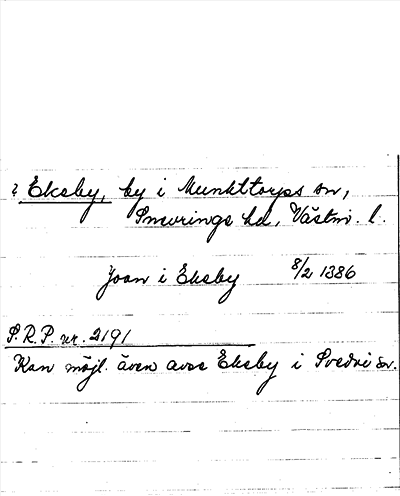 ? Eksby, by i Munktorps sn,
Snevringe hd, Västm. l.
Joan i Eksby 8/2 1386
S.R.P. nr. 2191
Kan möjl. även avse Eksby i Svedvi sn.